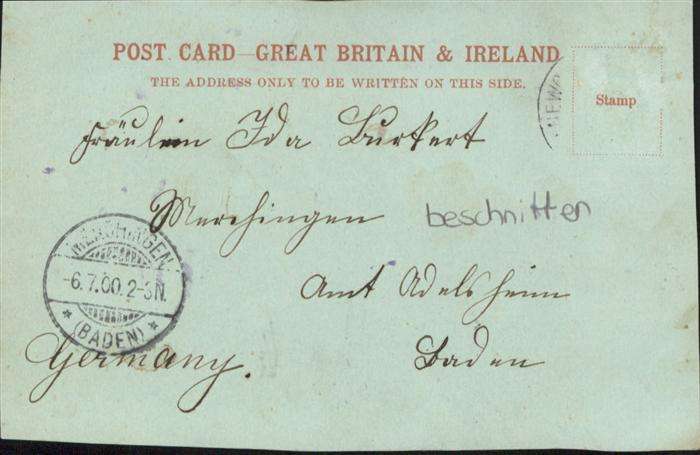 POST CARD—GREAT BRITAIN & IRELAND
THE ADDRESS ONLY TO BE WRITTEN ON THIS SIDE.
Stamp
Fräulein Ida Burkert
Merchingen
beschnitten
MERCHINGEN
-6.7.00.2-3N.
* (BADEN) *
Amt Adelsheim
Baden
Germany.